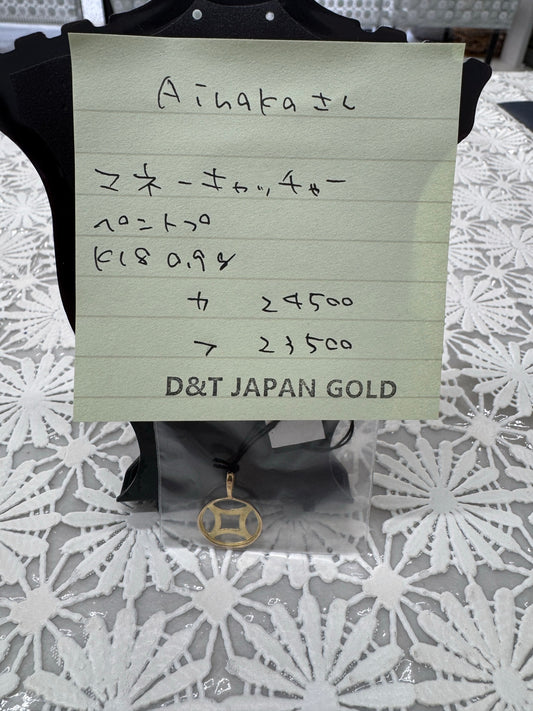 Ainakaさん
マネーキャッチャー
ペントップ
K18 0.9g
カ 24500
フ 23500
D&T JAPAN GOLD